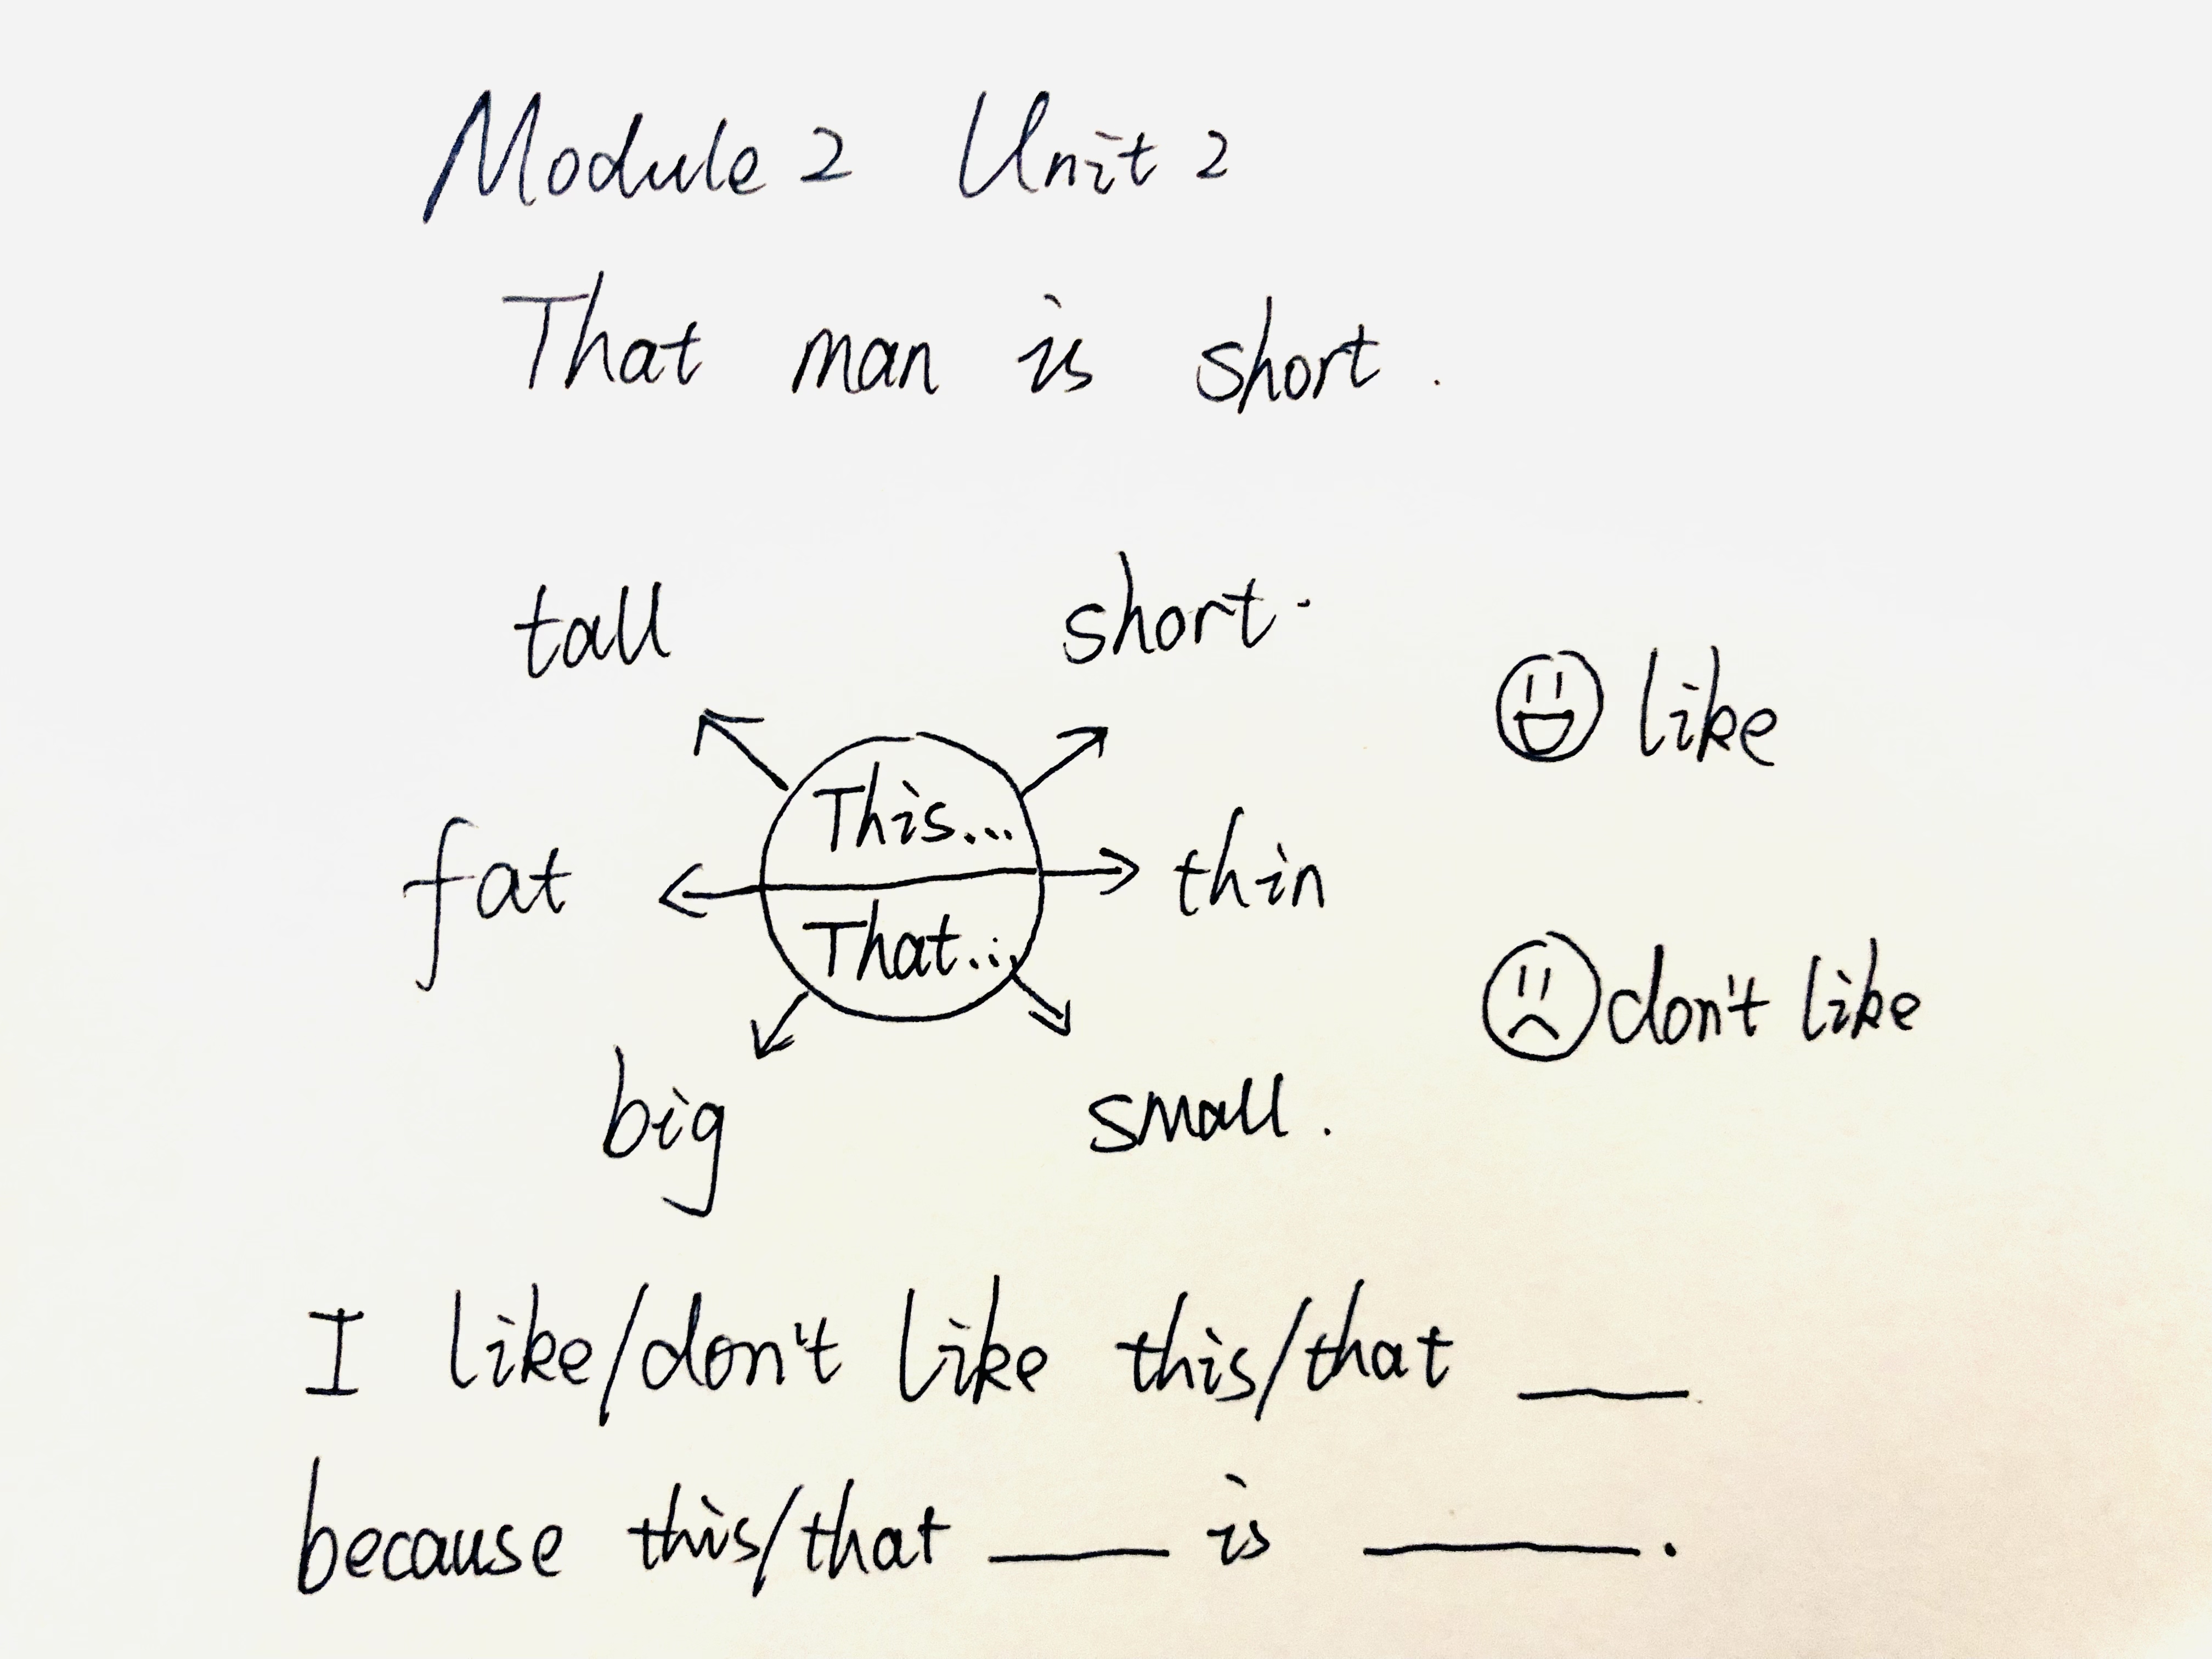 Module 2 Unit 2
That man is short.
tall
short
like
This...
fat
thin
That...
don't like
big
small.
I like/don't like this/that ___
because this/that ___ is ___.